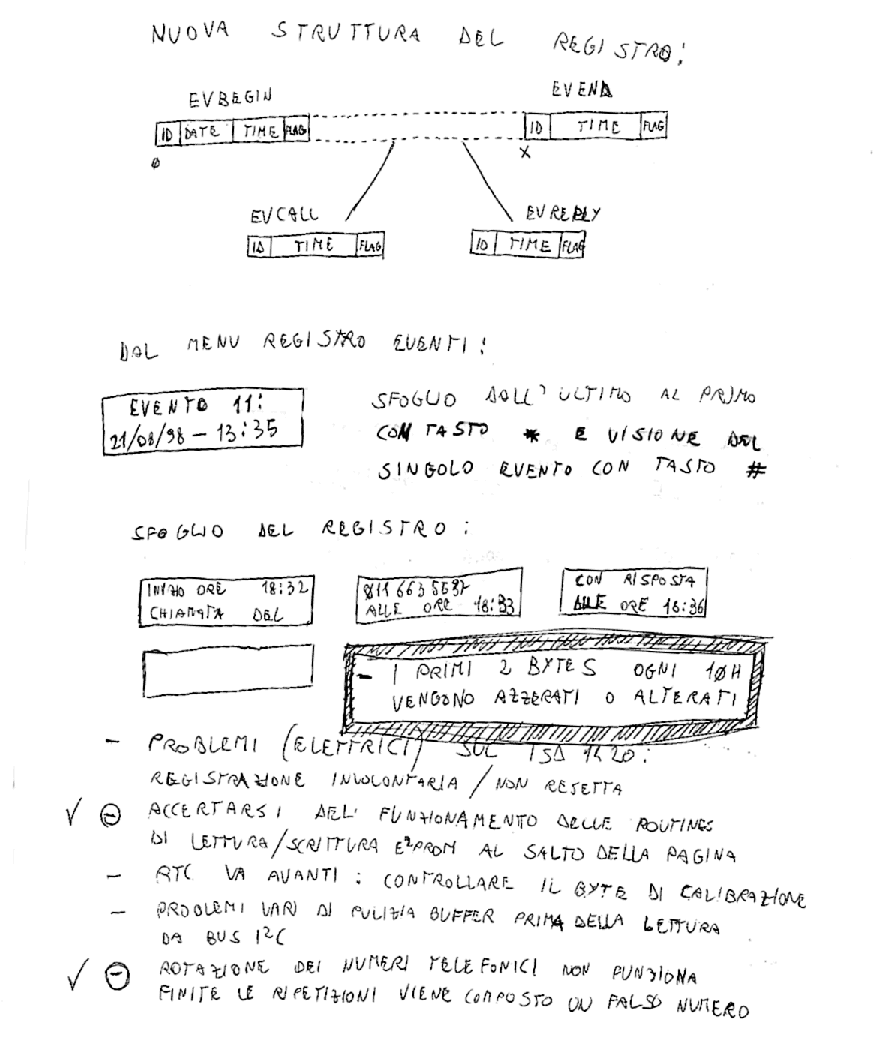 NUOVA STRUTTURA DEL REGISTRO:
EVBEGIN
EVEND
ID DATE TIME FLAG
ID TIME FLAG
Ø
X
EVCALL
EVREPLY
ID TIME FLAG
ID TIME FLAG
DAL MENU REGISTRO EVENTI:
EVENTO 11:
21/08/98 - 13:35
SFOGLIO DALL'ULTIMO AL PRIMO
CON TASTO * E VISIONE DEL
SINGOLO EVENTO CON TASTO #
SFOGLIO DEL REGISTRO:
INIZIO ORE 18:32
CHIAMATA DEL
Ø11 663 5697
ALLE ORE 18:33
CON RISPOSTA
ALLE ORE 18:36
- I PRIMI 2 BYTES OGNI 1ØH
VENGONO AZZERATI O ALTERATI
- PROBLEMI (ELETTRICI) SUL ISD 1420:
REGISTRAZIONE INVOLONTARIA / NON RESETTA
✓ ⊖ ACCERTARSI DEL FUNZIONAMENTO DELLE ROUTINES
DI LETTURA/SCRITTURA E²PROM AL SALTO DELLA PAGINA
- RTC VA AVANTI: CONTROLLARE IL BYTE DI CALIBRAZIONE
- PROBLEMI VARI DI PULIZIA BUFFER PRIMA DELLA LETTURA
DA BUS I²C
✓ ⊖ ROTAZIONE DEI NUMERI TELEFONICI NON FUNZIONA
FINITE LE RIPETIZIONI VIENE COMPOSTO UN FALSO NUMERO